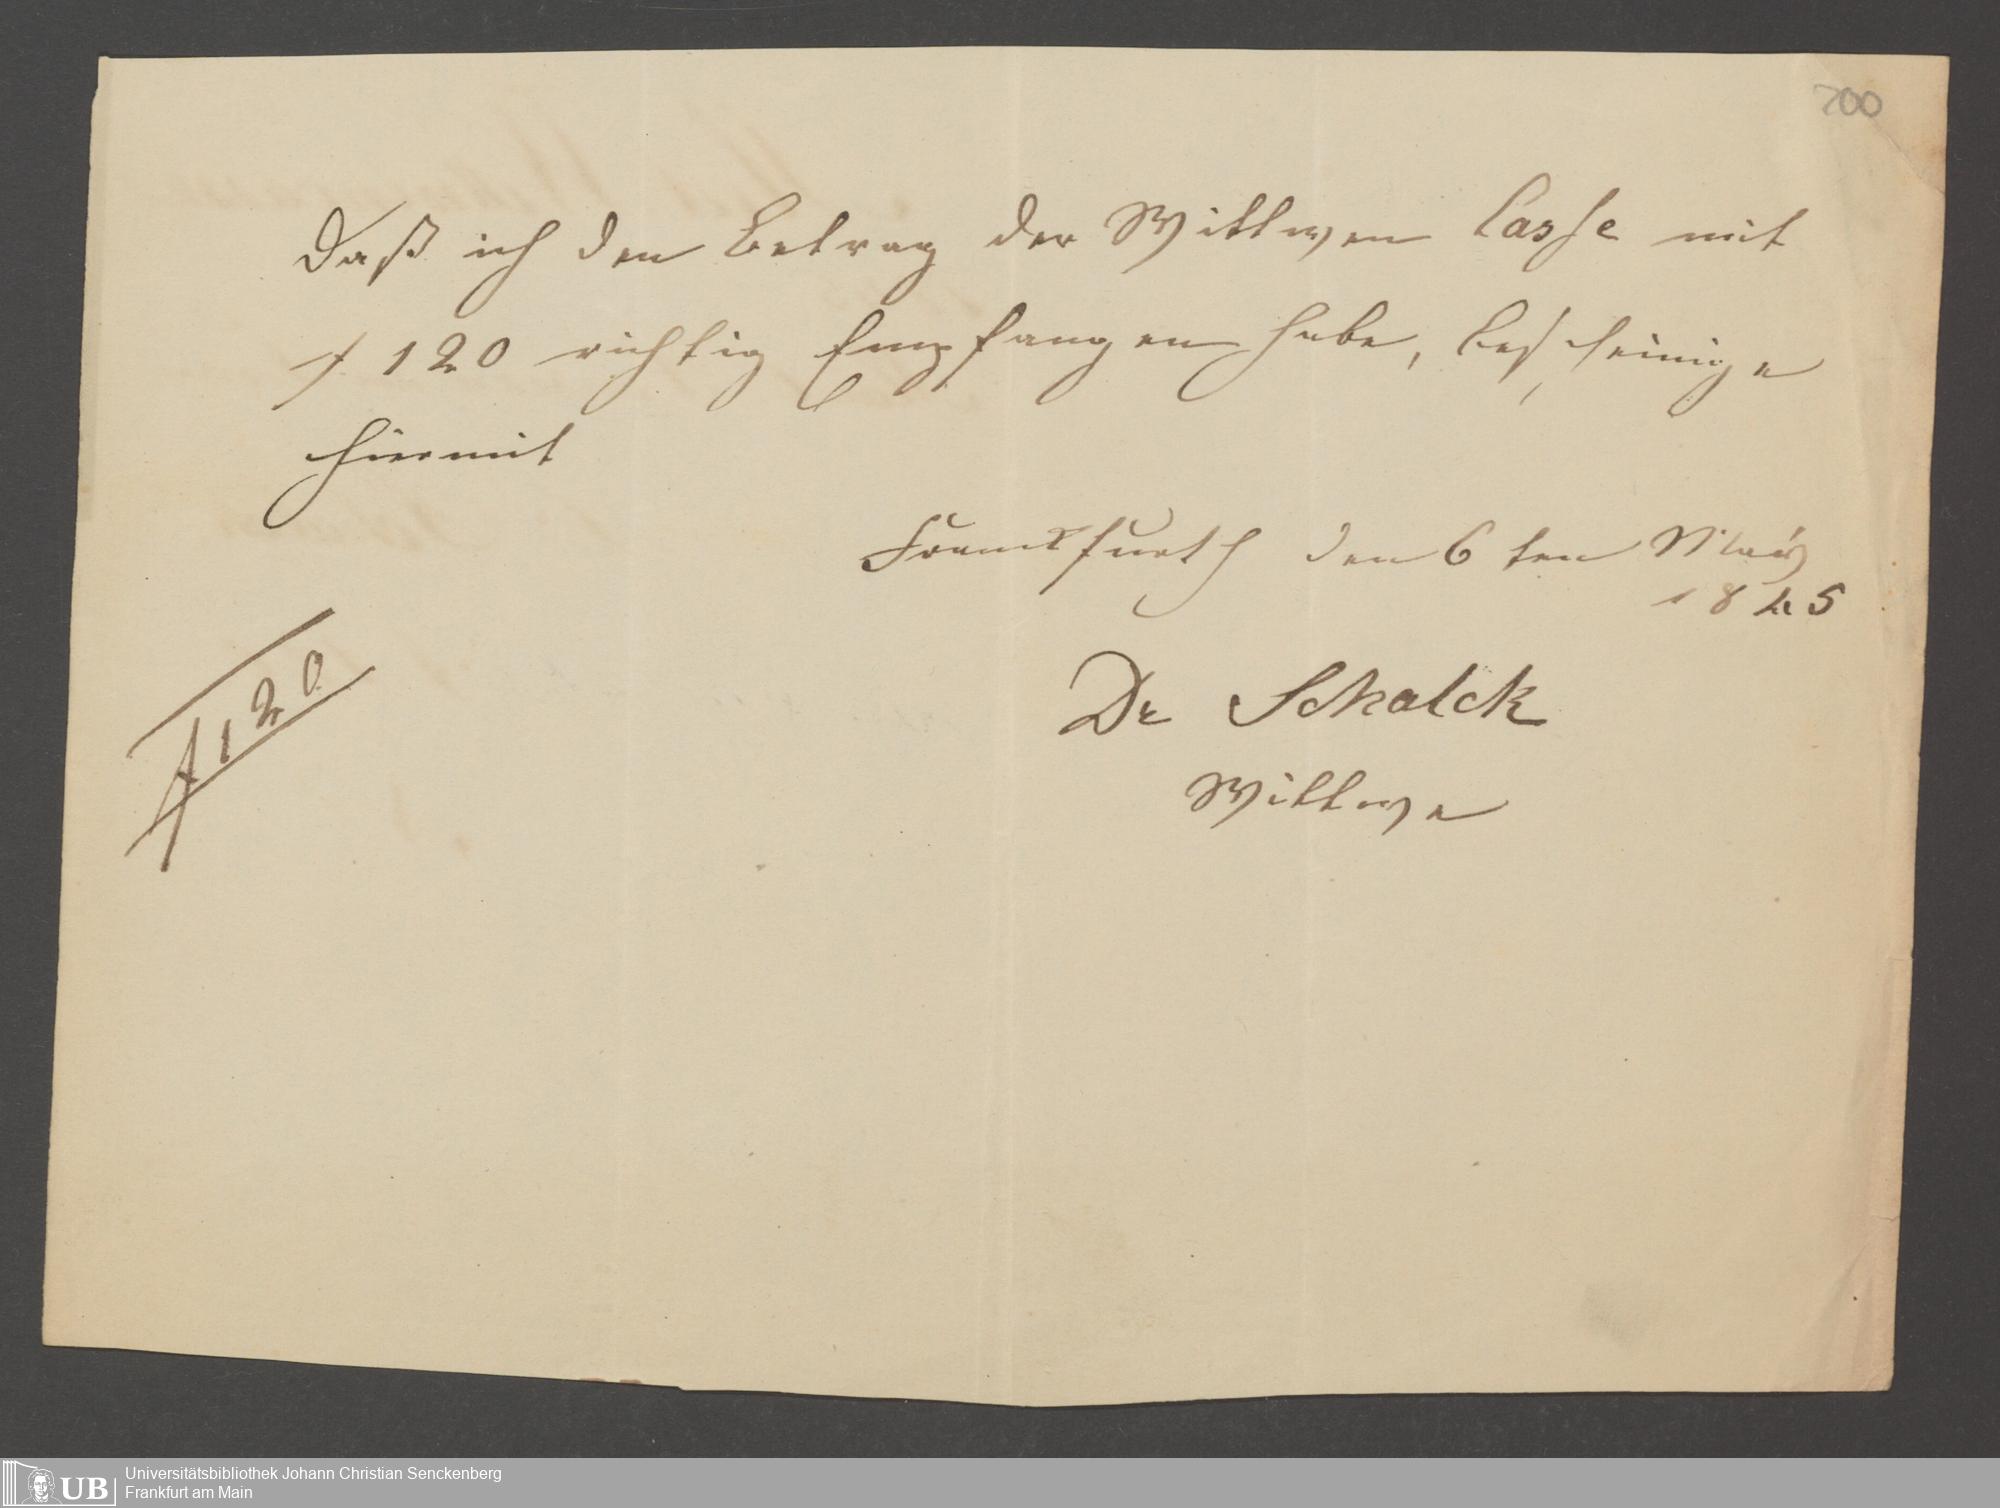 700
Daß ich den Betrag der Wittwen Casse mit
f 120 richtig Empfangen habe, bescheinige
hiermit
Franckfurth den 6 ten März
1845
Dr Schalck
Wittwe
f 120
Universitätsbibliothek Johann Christian Senckenberg
Frankfurt am Main
UB